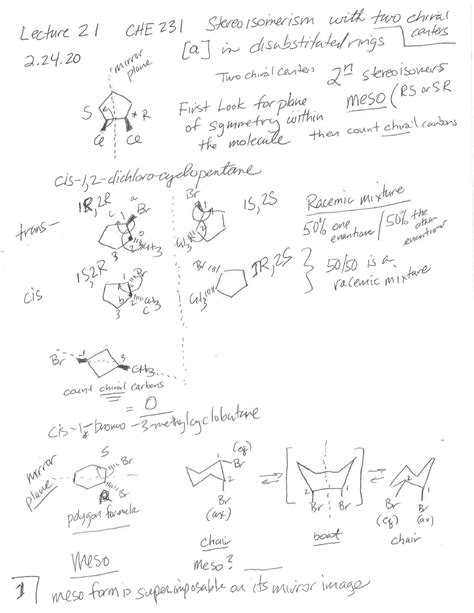 Lecture 21 CHE 231 Stereoisomerism with two chiral centers
2.24.20 [a] in disubstituted rings
mirror plane
Two chiral centers 2^n stereoisomers
meso (RS or SR
S * R
First Look for plane
of symmetry within
the molecule then count chiral carbons
cis-1,2-dichloro-cyclopentane
trans- 1R,2R Br CH3 1S,2S
Racemic mixture
50% one enantiomer / 50% the other enantiomer
cis 1S,2R Br CH3 1R,2S
50/50 is a
racemic mixture
Br CH3
count chiral carbons
= 0
cis-1-bromo-3-methylcyclobutane
mirror plane
S R Br Br
(eq) Br
Br (ax)
Br Br
Br (eq) Br (ax)
polygon formula chair boat chair
Meso meso?
1 meso form is superimposable on its mirror image